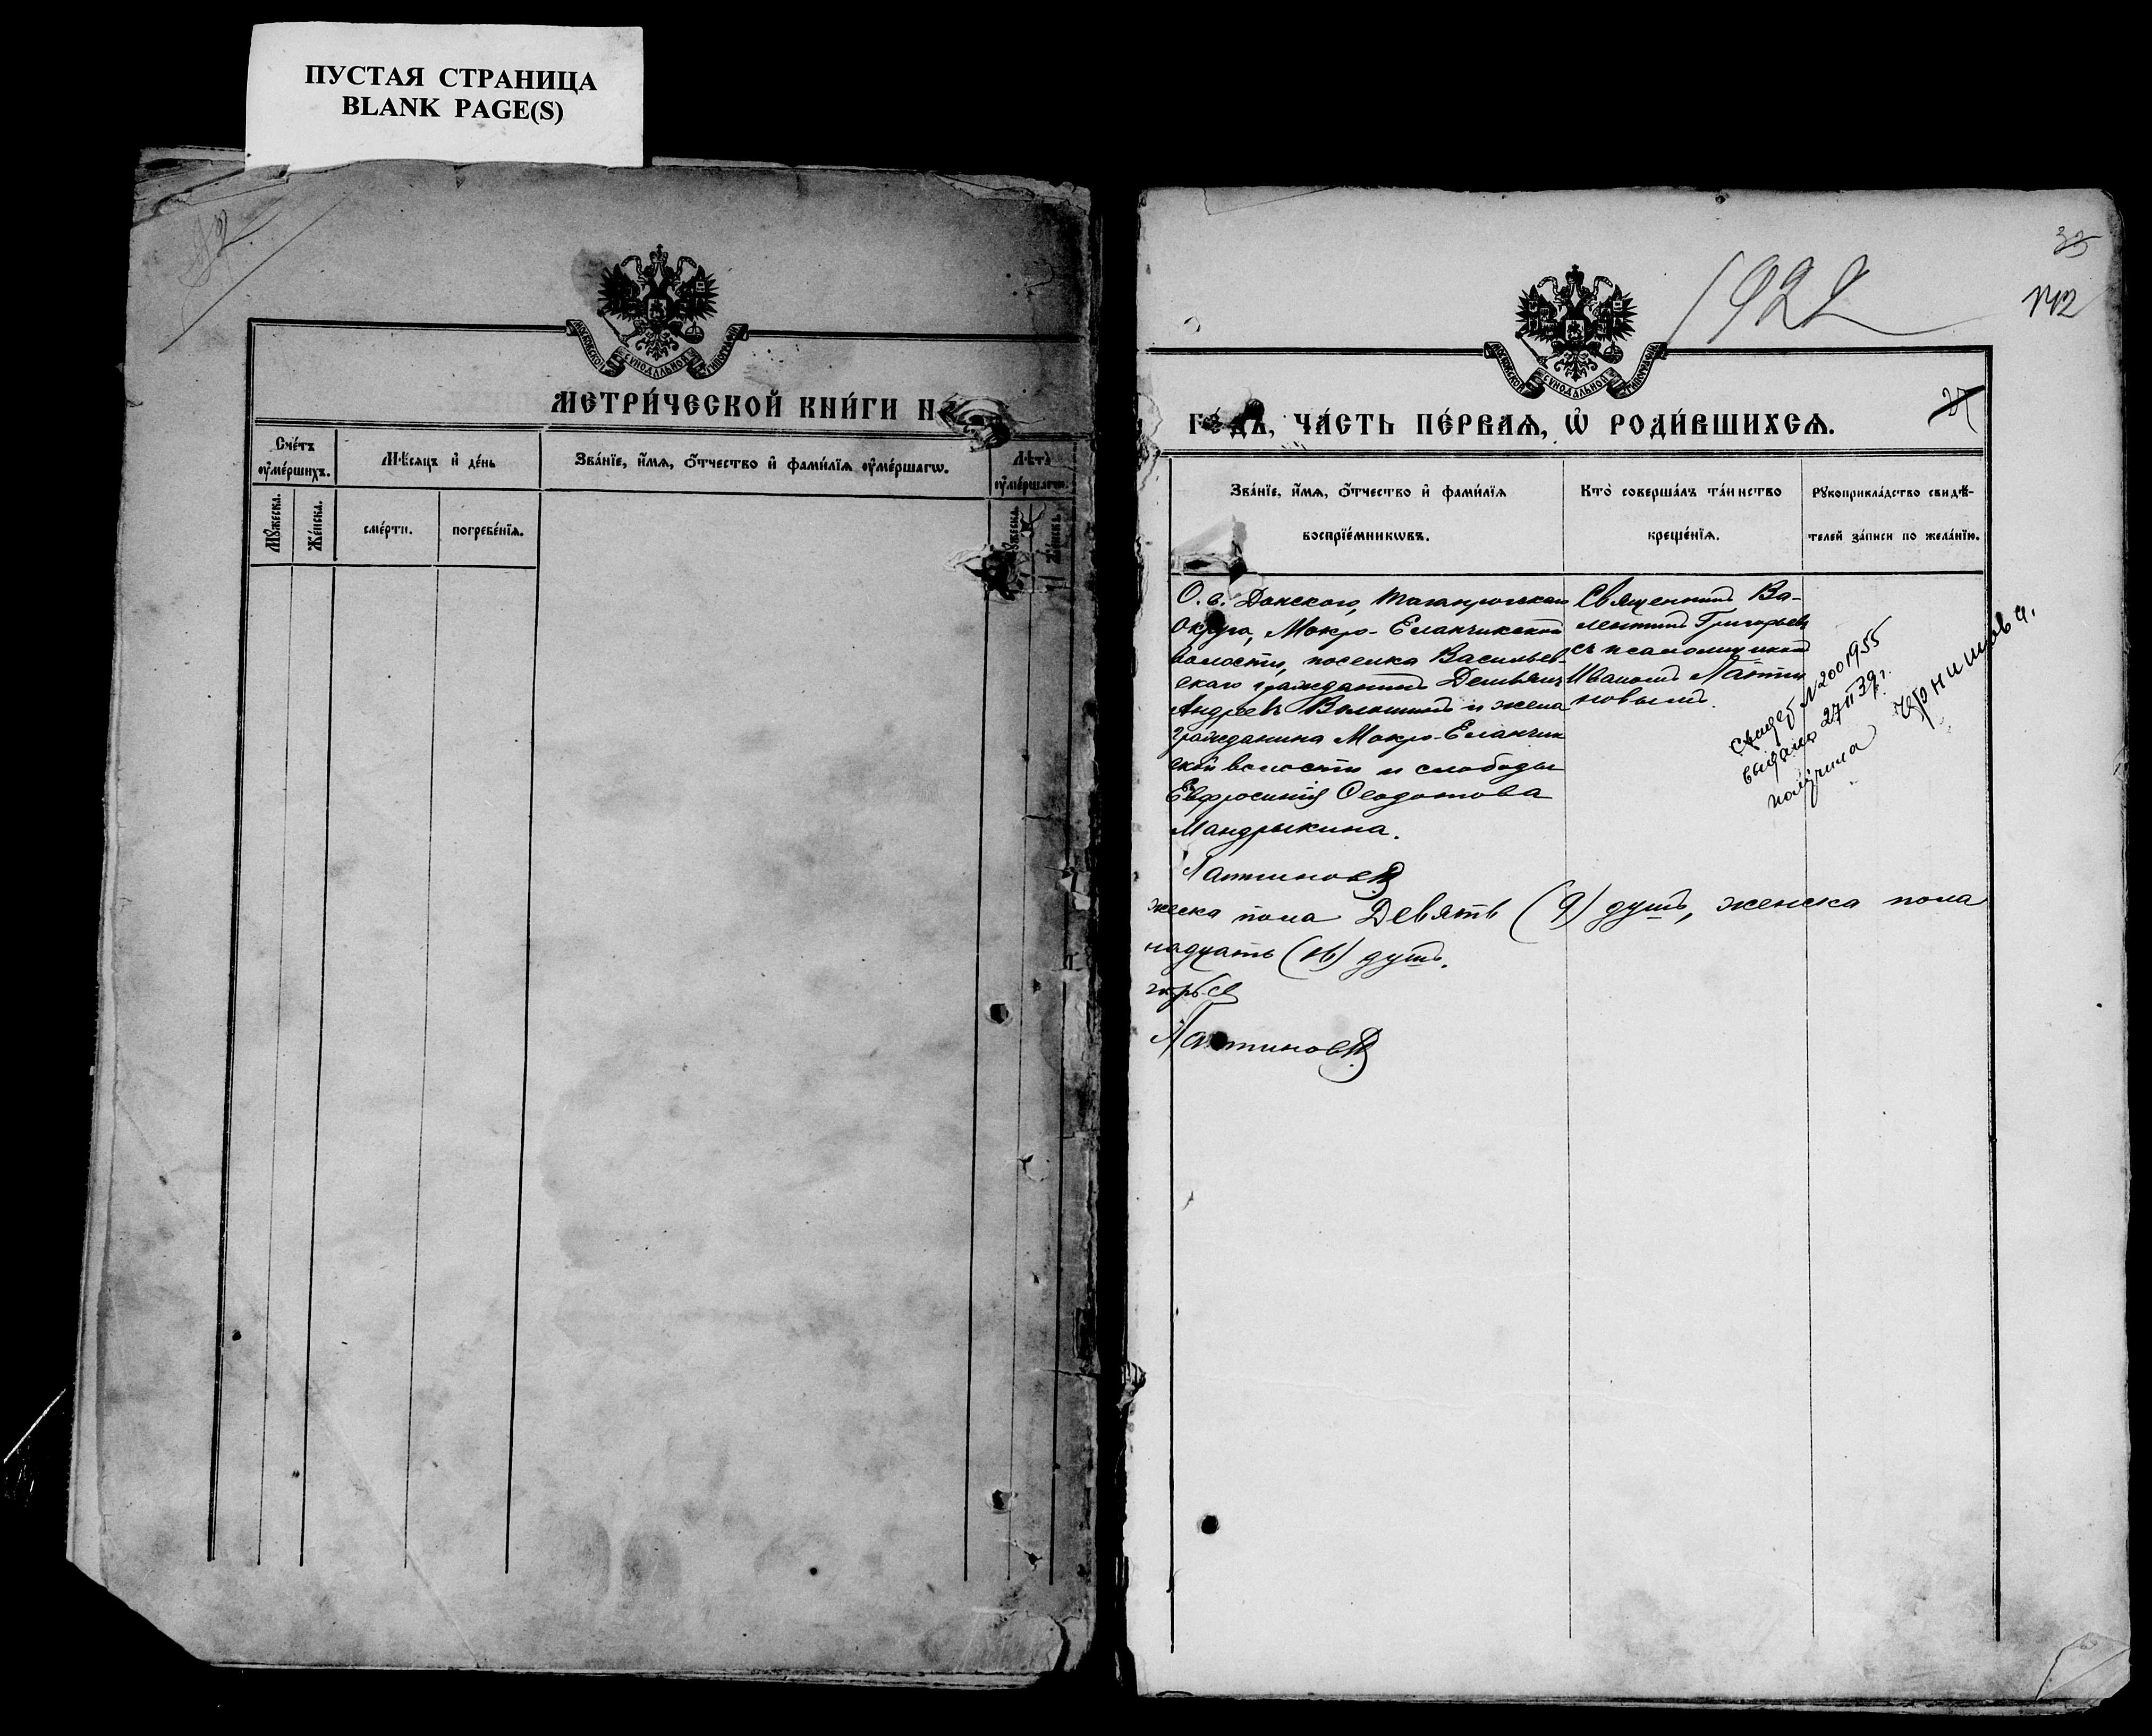 ПУСТАЯ СТРАНИЦА
BLANK PAGE(S)
МОСКОВСКОЙ СѴНОДАЛЬНОЙ ТИПОГРАФІИ
МЕТРИ́ЧЕСКОЙ КНИ́ГИ Н
Сче́тъ
ᲂу҆ме́ршихъ.
Мѣ́сяцъ и҆ де́нь
Зва́нїе, и҆́мѧ, ѻ҆́тчество и҆ фами́лїѧ ᲂу҆ме́ршагѡ.
Лѣ́та
ᲂу҆ме́ршагѡ.
Мꙋ́жеска.
Же́нска.
сме́рти.
погребе́нїѧ.
Мꙋ́жеска.
Же́нска.
1922
33
142
МОСКОВСКОЙ СѴНОДАЛЬНОЙ ТИПОГРАФІИ
27
ГО́ДЪ, ЧА́СТЬ ПЕ́РВАѦ, Ѡ҆ РОДИ́ВШИХСѦ.
Зва́нїе, и҆́мѧ, ѻ҆́тчество и҆ фами́лїѧ
воспрїе́мникѡвъ.
Кто̀ соверша́лъ та́инство
креще́нїѧ.
Рꙋкоприкла́дство свидѣ́-
телей за́писи по жела́нїю.
О. в. Донского, Таганрогскаго
Округа, Мокро-Еланчикской
волости, поселка Васильев-
скаго гражданинъ Демьянъ
Андреевъ Волошинъ и жена
гражданина Мокро-Еланчик
ской волости и слободы
Евфросинія Ѳеодотова
Мандрыкина.
Лаптиновъ
Священникъ Ва-
лентинъ Григорьевъ
съ псаломщикомъ
Иваномъ Лапти
новымъ.
Свидет N 2001955
выдано 27 II 39 г.
получила Чернишова.
жеска пола Девять (9) душъ, женска пола
надцать (16) душъ.
Лаптиновъ